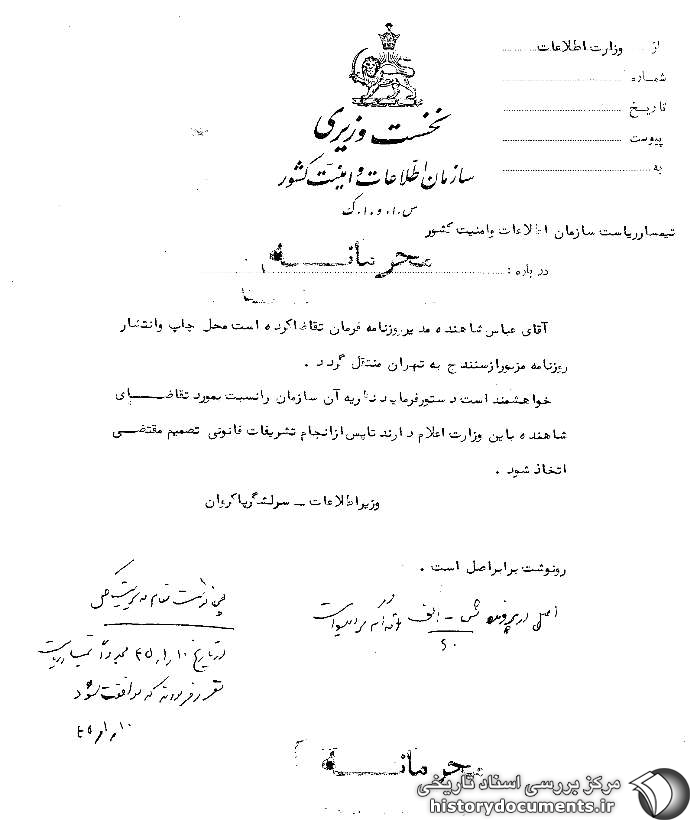 از وزارت اطلاعات
شماره
تاریخ
پیوست
به
نخست وزیری
سازمان اطلاعات و امنیت کشور
س.ا.و.ا.ک
تیمسار ریاست سازمان اطلاعات و امنیت کشور
محرمانه
درباره :
آقای عباس شاهنده مدیر روزنامه فرمان تقاضا کرده است محل چاپ وانتشار
روزنامه مزبور از سنندج به تهران منتقل گردد .
خواهشمند است دستور فرمایید نظریه آن سازمان را نسبت بمورد تقاضای
شاهنده باین وزارت اعلام دارند تا پس از انجام تشریفات قانونی تصمیم مقتضی
اتخاذ شود .
وزیر اطلاعات – سرلشگر پاکروان
رونوشت برابر اصل است .
اصل در پرونده ش - الف
در تاریخ ۴۵٫۱٫۱۰
مقرر فرمودند که موافقت شود
۴۵٫۱٫۱۰
محرمانه
مرکز بررسی اسناد تاریخی
historydocuments.ir